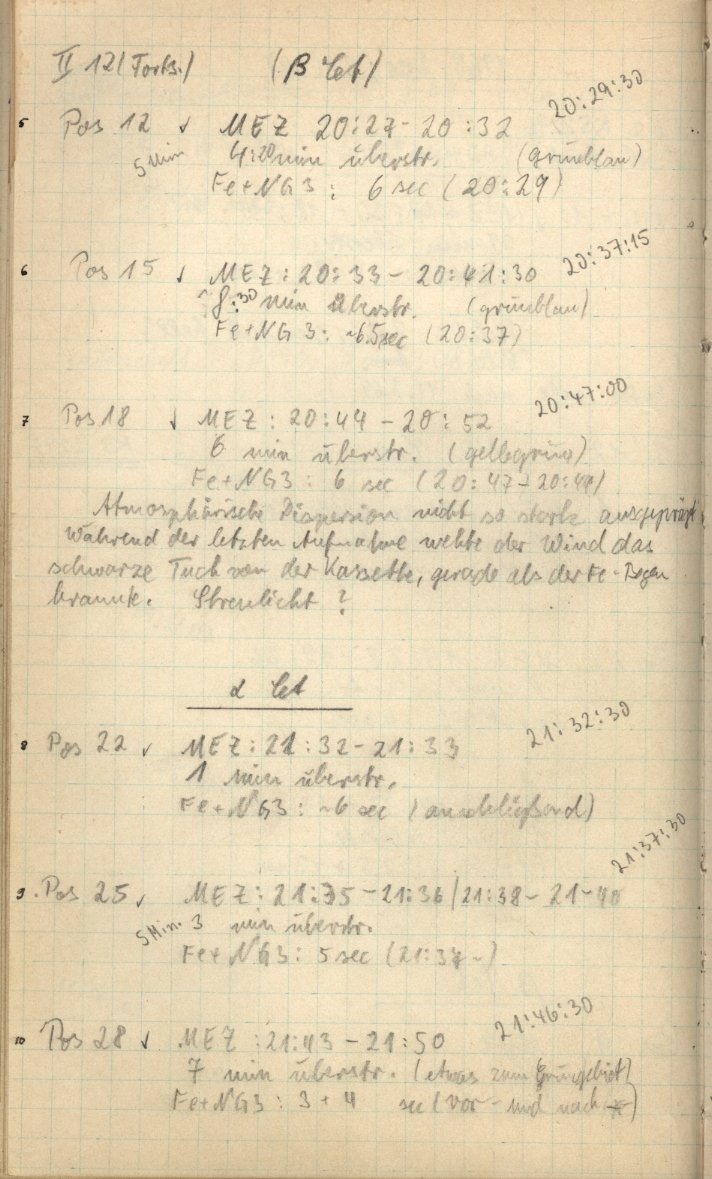 II 12 (Forts.) (β Cet)
20:29:30
5 Pos 12 ✓ MEZ 20:27 - 20:32
5 Min 4:20 min überstr. (grünblau)
Fe+NG3: 6 sec (20:29)
20:37:15
6 Pos 15 ✓ MEZ: 20:33 - 20:41:30
8:30 min überstr. (grünblau)
Fe+NG3: ~6.5 sec (20:37)
20:47:00
7 Pos 18 ✓ MEZ: 20:44 - 20:52
6 min überstr. (gelbgrün)
Fe+NG3: 6 sec (20:47 - 20:48)
Atmosphärische Dispersion nicht so stark ausgeprägt
Während der letzten Aufnahme wehte der Wind das
schwarze Tuch von der Kassette, gerade als der Fe-Bogen
brannte. Streulicht?
α Cet
21:32:30
8 Pos 22 ✓ MEZ: 21:32 - 21:33
1 min überstr.
Fe+NG3: ~6 sec (anschließend)
21:37:30
9. Pos 25 ✓ MEZ: 21:35 - 21:36 / 21:38 - 21-40
5 Min. 3 min überstr.
Fe+NG3: 5 sec (21:37 -)
21:46:30
10 Pos 28 ✓ MEZ: 21:43 - 21:50
7 min überstr. (etwas zum Grüngebiet)
Fe+NG3: 3 + 4 sec (vor- und nach *)